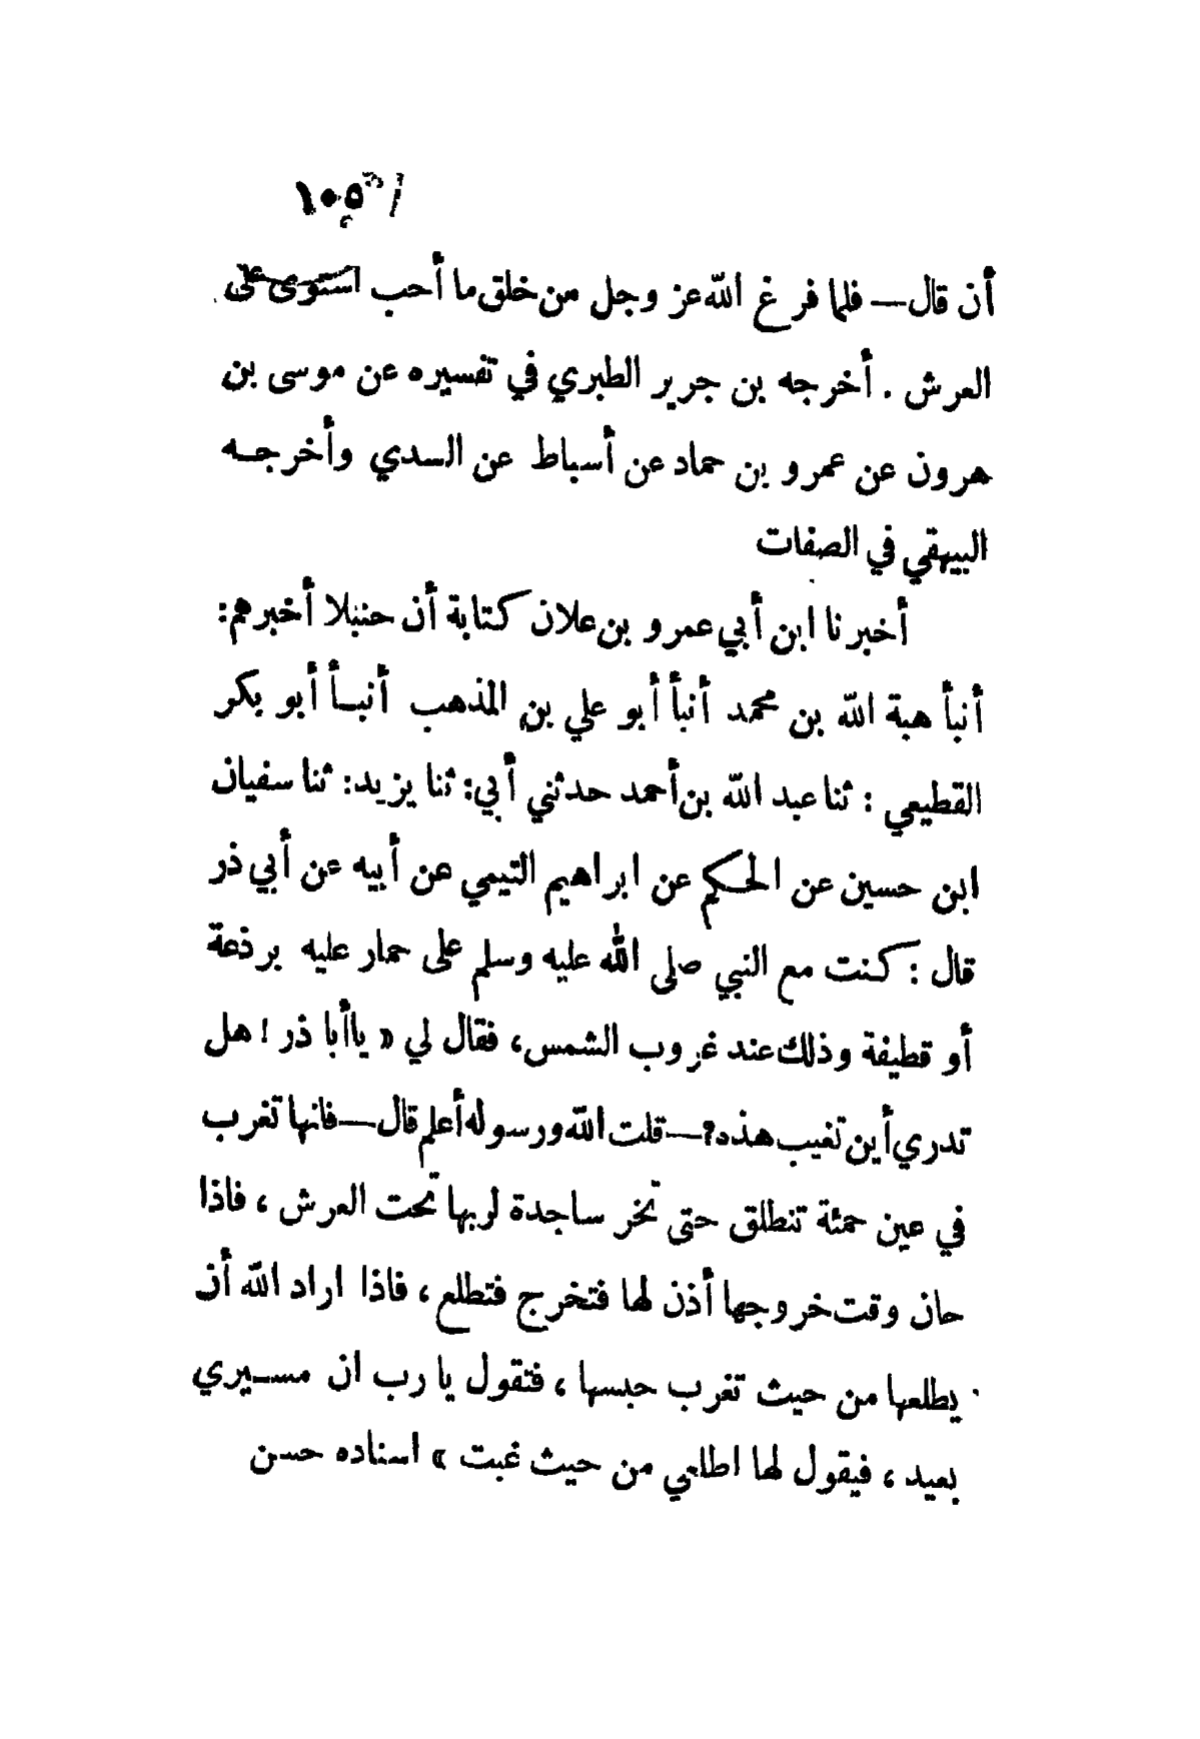 ١٠٥
أن قال — فلما فرغ الله عز وجل من خلق ما أحب استوى على
العرش . أخرجه بن جرير الطبري في تفسيره عن موسى بن
هرون عن عمرو بن حماد عن أسباط عن السدي وأخرجه
البيهقي في الصفات
أخبرنا ابن أبي عمرو بن علان كتابة أن حنبلا أخبرهم:
أنبأ هبة الله بن محمد أنبأ أبو علي بن المذهب أنبأ أبو بكر
القطيعي : ثنا عبد الله بن أحمد حدثني أبي: ثنا يزيد: ثنا سفيان
ابن حسين عن الحكم عن ابراهيم التيمي عن أبيه عن أبي ذر
قال : كنت مع النبي صلى الله عليه وسلم على حمار عليه برذعة
أو قطيفة وذلك عند غروب الشمس، فقال لي « يا أبا ذر ! هل
تدري أين تغيب هذه؟ — قلت الله ورسوله أعلم قال — فانها تغرب
في عين حمئة تنطلق حتى تخر ساجدة لربها تحت العرش ، فاذا
حان وقت خروجها أذن لها فتخرج فتطلع ، فاذا اراد الله أن
يطلعها من حيث تغرب حبسها ، فتقول يا رب ان مسيري
بعيد ، فيقول لها اطلعي من حيث غبت » اسناده حسن